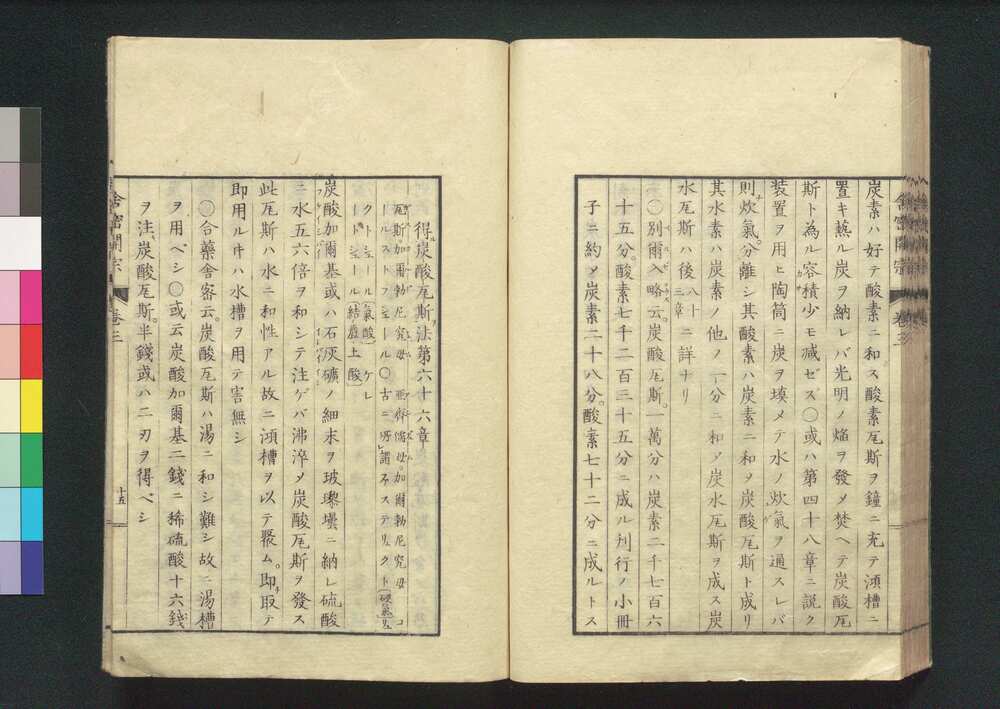 炭素ハ好テ酸素ニ和ス酸素瓦斯ヲ鐘ニ充テ澒槽ニ
置キ熱ル炭ヲ納レバ光明ノ焔ヲ發メ焚ヘテ炭酸瓦
斯ト為ル容積少モ減ゼズ〇或ハ第四十八章ニ説ク
装置ヲ用ヒ陶筒ニ炭ヲ填メテ水ノ炊氣ヲ通スレバ
則炊氣分離シ其酸素ハ炭素ニ和メ炭酸瓦斯ト成リ
其水素ハ炭素ノ他ノ一分ニ和メ炭水瓦斯ヲ成ス炭
水瓦斯ハ後八十三章ニ詳ナリ
〇別爾入略云炭酸瓦斯一萬分ハ炭素二千七百六
十五分酸素七千二百三十五分ニ成ル刋行ノ小冊
子ニ約メ炭素二十八分酸素七十二分ニ成ルトス
舎密開宗 巻三
得炭酸瓦斯法第六十六章
瓦斯加爾勃尼究母 亜斉儒母加爾勃尼究母 コ
ールスストフ ュール〇古ニ所謂ネステリクト
クトシュール(氣酸) ケレ
ートシュール
炭酸加爾基或ハ石灰礦ノ細末ヲ玻瓈壜ニ納レ硫酸
ニ水五六倍ヲ和シテ注ゲバ沸淬メ炭酸瓦斯ヲ發ス
此瓦斯ハ水ニ和性アル故ニ澒槽ヲ以テ聚ム即取テ
即用ルヰハ水槽ヲ用テ害無シ
〇合藥舎密云炭酸瓦斯ハ湯ニ和シ難シ故ニ湯槽
ヲ用ベシ〇或云炭酸加爾基二錢ニ稀硫酸十六錢
ヲ注炭酸瓦斯半錢或ハ二刃ヲ得ベシ
舎密開宗 巻三
十五